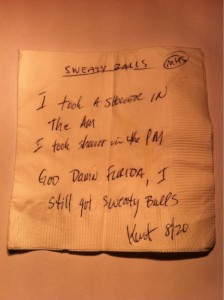 SWEATY BALLS
I took A shower IN
The AM
I took shower in the PM
GOD DAMN FLORIDA, I
still got sweaty Balls
Kent 8/20